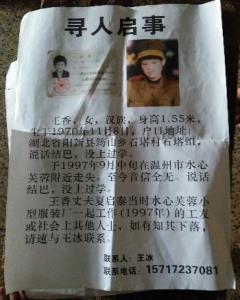 寻人启事
王香，女，汉族，身高1.55米，
生于1970年11月8日，户口地址：
湖北省阳新县筠山乡石塔村石塔组，
说话结巴，没上过学。
于1997年9月中旬在温州市水心
芙蓉附近走失，至今音信全无。说话
结巴，没上过学。
王香丈夫夏启泰当时水心芙蓉小
型服装厂一起工作（1997年）的工友
或社会上其他人士，如有知其下落，
请速与王冰联系。
联系人：王冰
联系电话：15717237081